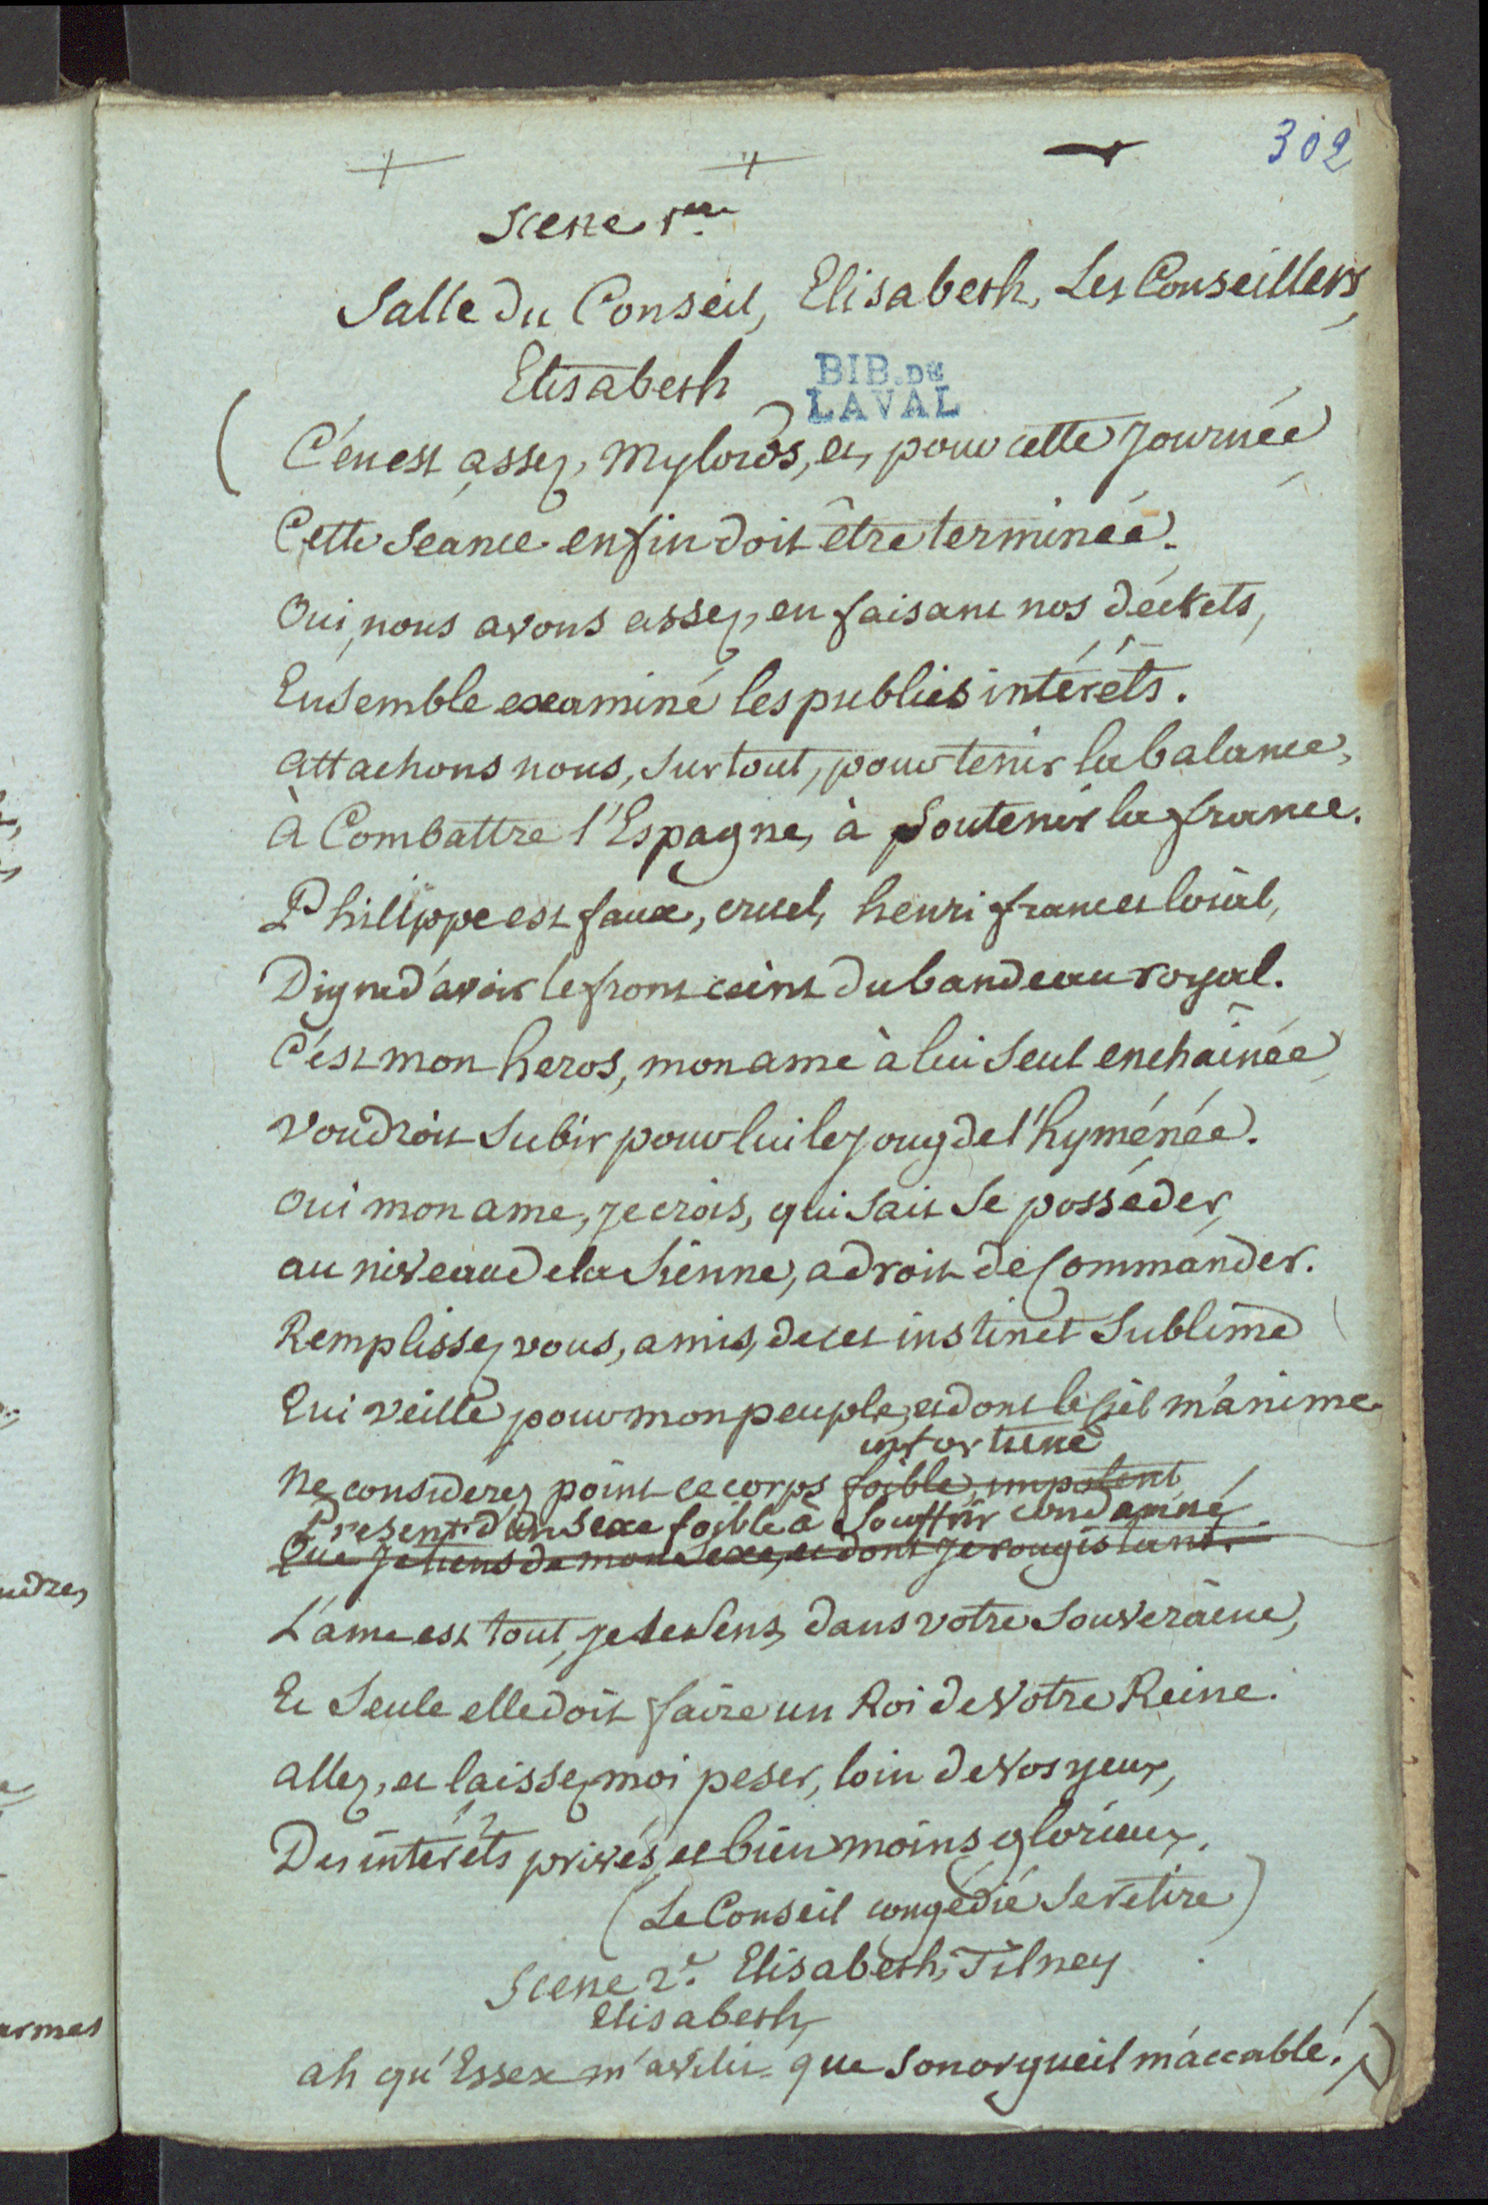 302
Scene 1ere
Salle du Conseil, Elisabeth, Les Conseillers,
Elisabeth
BIB. DE
LAVAL
( C'en est assez, Mylords, et, pour cette journée
Cette Seance enfin doit être terminée.
Oui, nous avons assez, en faisant nos décrets,
Ensemble examiné les publics intérêts.
attachons nous, surtout, pour tenir la balance,
à Combattre l'Espagne, à Soutenir la france.
Philippe est faux, cruel, henri franc et loïal,
Digne d'avoir le front ceint du bandeau royal.
C'est mon heros, mon ame à lui Seul enchaînée
Voudroit Subir pour lui le joug de l'hyménée.
Oui mon ame, je crois, qui Sait Se posséder,
au niveau de la Sienne, a droit de Commander.
Remplissez vous, amis, de cet instinct Sublime
Qui veille pour mon peuple, et dont le Ciel m'anime
infortuné
Ne considerez point ce corps foible, impotent
Present d'un Sexe foible à Souffrir condamné.
Que je tiens de mon Sexe, et dont je rougis tant.
L'ame est tout, je le Sens, dans votre Souveraine,
Et Seule elle doit faire un Roi de Votre Reine.
allez, et laissez moi peser, loin de Vos yeux,
Des intérêts privés, et bien moins glorieux.
(Le Conseil congédié Se retire)
Scene 2e. Elisabeth, Tilney
Elisabeth,
ah qu'Essex m'avilit que Son orgueil m'accable!)
udre,
armes